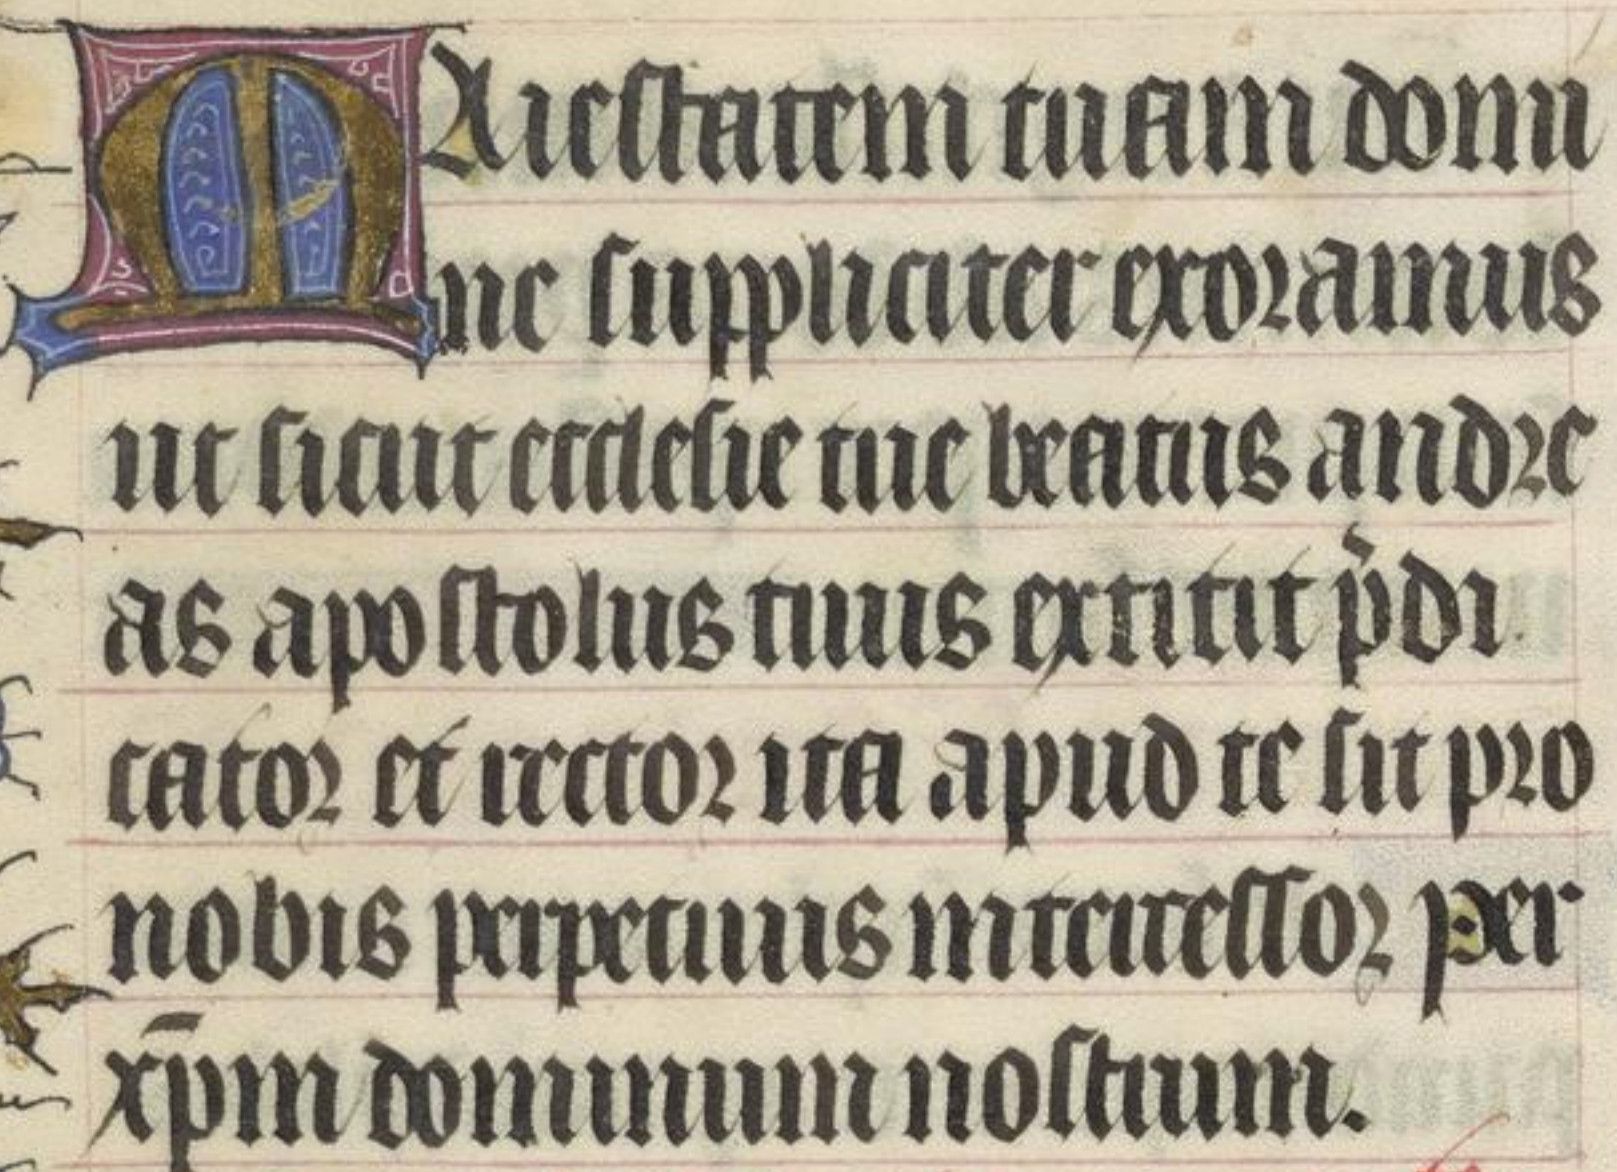 MAiestatem tuam domi
ne suppliciter exoramus
ut sicut ecclesie tue beatus andre
as apostolus tuus extitit p̾di
cator et rector ita apud te sit pro
nobis perpetuus intercessor per
xp̄m dominum nostrum.